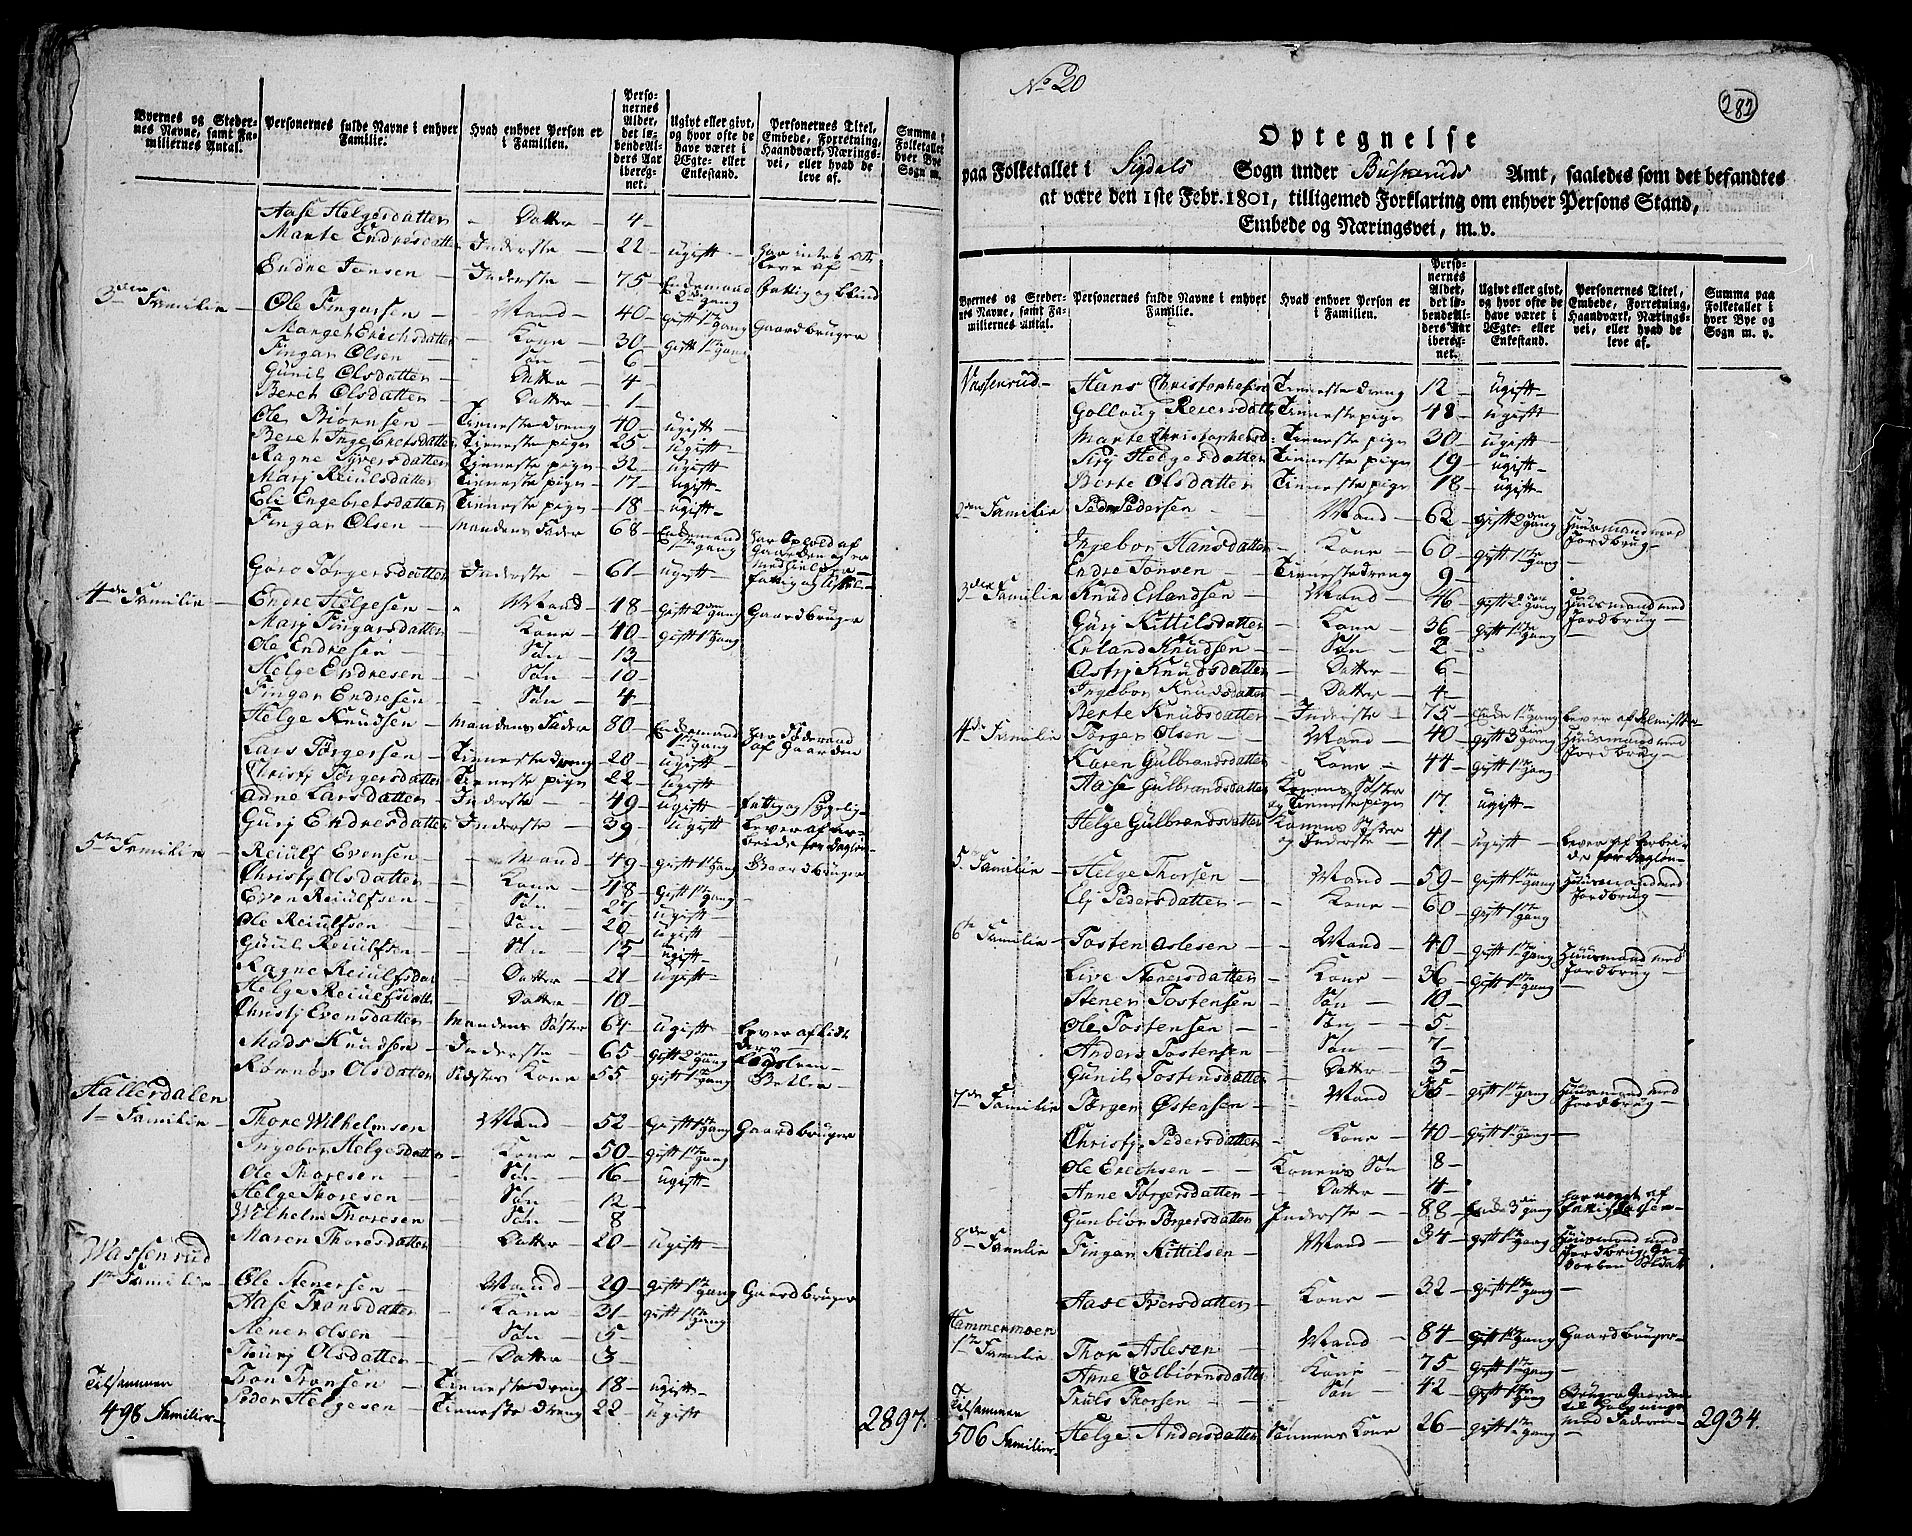 Byernes og Steder-
nes Navne, samt Fa-
miliernes Antal.
Personernes fulde Navne i enhver
Familie.
Hvad enhver Person er
i Familien.
Perso-
nernes
Alder,
det lø-
bendeAl-
ders Aar
iberegn-
net.
Ugivt eller givt,
og hvor ofte de
have været i
Ægte- eller
Enkestand.
Personernes Titel,
Embede, Forretning,
Haandværk, Nærings-
vei, eller hvad de
leve af.
Summa
Folketallet
hver Bye og
Sogn m.
Aase Helgesdatter - Datter - 4 -
Marte Endresdatter Inderste - 22 - ugift - har intet at leve af -
Endre Jonsen - Inderste - 75 - Enkemand 2den gang fattig og blind
3de Familie - Ole Fingarsen - Mand - 40 - Gift 1te gang Gaardbruger
Marget Erichsdatter - Kone - 30 - Gift 1te gang
Fingar Olsen - Søn - 6 -
Gunil Olsdatter - Datter - 4 -
Beret Olsdatter - Datter - 1 -
Ole Biørnsen - Tienestedreng - 40 - ugift -
Beret Ingebretsdatter Tienestepige - 25 - ugift
Ragne Syversdatter Tienestepige - 32 - ugift
Marj Reiulsdatter Tienestepige - 17 - ugift -
Eli Engebretsdatter Tienestepige - 18 - ugift -
Fingar Olsen - Mandens Fader - 68 - Enkemand 1te gang har Ophold af Gaarden og er
Goro Torgersdatter Inderste - 61 - ugift - fattig og
4de Familie - Endre Helgesen - Mand - 48 - Gift 2den gang Gaardbruger
Marj Fingarsdatter - Kone - 40 - gift 1te gang
Ole Endresen - Søn - 13 -
Helge Endresen - Søn - 10 -
Fingar Endresen - Søn - 4 -
Helge Knudsen - Mandens Fader - 80 - Enkemand 1te gang har Føderaad af Gaarden
Lars Torgersen - Tienestedreng - 20 - ugift -
Christj Torgersdatter Tienestepige - 22 - ugift
Anne Larsdatter - Inderste - 49 - ugift - fattig og sygelig
Gurj Endresdatter Inderste - 39 - ugift - lever af ar-
beide for dagløn
5te Familie - Reiulf Evensen - Mand - 49 - gift 1te gang Gaardbruger
Christj Olsdatter - Kone - 48 - Gift 1te gang
Even Reiulfsen - Søn - 27 - ugift -
Ole Reiulfsen - Søn - 20 - ugift -
Guul Reiulfsen - Søn - 15 - ugift -
Ragne Reiulfsdat - Datter - 21 - ugift -
Helge Reiulfsdatter - Datter - 10 -
Christj Evensdatter Mandens Søster - 64 - ugift -
Mads Knudsen - Inderste - 65 - gift 2den gang
Rønnøv Olsdatter Sidstes Kone - 55 - gift 1te gang Betler -
Hallerdalen
1te Familie - Thore Wilhelmsen Mand - 52 - Gift 1te gang Gaardbruger
Ingebor Helgesdatter - Kone - 50 - gift 1te gang
Ole Thoresen - Søn - 16 - ugift -
Helge Thoresen - Søn - 12 -
Wilhelm Thoresen - Søn - 8
Maren Thoresdatter - Datter - 20 - ugift -
Wassenrud
1te Familie - Ole Stenersen - Mand - 29 - Gift 1te gang Gaardbruger
Aase Tronsdatter - Kone - 31 - gift 1te gang
Stener Olsen - Søn - 5 -
Sigurj Olsdatter - Datter - 3 -
Tilsammen Tron Tronsen - Tienestedreng - 18 - ugift -
498 Familier - Peder Helgesen - Tienestedreng - 22 - ugift 2897.
No 20
282
Optegnelse
paa Folketallet i Sigdals Sogn under Buskeruds Amt, saaledes som det befandtes
at være den 1ste Febr. 1801, tilligemed Forklaring om enhver Persons Stand,
Embede og Næringsvei, m. v.
Byernes og Steder-
nes Navne, samt Fa-
miliernes Antal.
Personernes fulde Navne i enhver
Familie.
Hvad enhver Person er
i Familien.
Perso-
nernes
Alder,
det lø-
bendeAl-
ders Aar
iberegn-
net.
Ugivt eller givt,
og hvor ofte de
have været i
Ægte- eller
Enkestand.
Personernes Titel,
Embede, Forretning,
Haandværk, Nærings-
vei, eller hvad de
leve af.
Summa paa
Folketallet i
hver Bye og
Sogn m. v.
Vassenrud - Hans Christophersen Tienestedreng 12 - ugift -
Gollaug Reiersdatter Tienestepige - 48 - ugift
Marte Christophersd: Tienestepige - 30 - ugift
Sirj Helgesdatter Tienestepige - 19 - ugift -
Berte Olsdatter Tienestepige 18 - ugift -
2den Familie Peder Pedersen - Mand - 62 - gift 2den gang Huusmand med Jordbrug -
Ingebor Hansdatter - Kone - 60 - gift 1te gang -
Endre Jonsen - Tienestedreng 9 -
3die Familie Knud Erlandsen - Mand - 46 - gift 2den gang Huusmand med Jordbrug -
Gurj Kittilsdatter - Kone - 36 - gift 1te gang
Erland Knudsen - Søn - 2 -
Astrj Knudsdatter - Datter - 6 -
Ingebor Knudsdatter - Datter - 4 -
Berte Knudsdatter - Inderste - 75 - Enke 1te gang lever af Almisse
4de Familie Torger Olsen - Mand - 40 - gift 3die gang Huusmand med Jordbrug -
Karen Gulbrandsdatter - Kone - 44 - gift 1te gang
Aase Gulbrandsdatter Konens Søster og Tienestepige 17 ugift -
Helge Gulbrandsdatter Konens Søster og Inderste - 41 - ugift - lever af Arbei-
de for dagløn -
5te Familie - Helge Thorsen - Mand - 59 - gift 1te gang Huusmand med Jordbrug -
Elj Pedersdatter - Kone - 60 - gift 1te gang
6te Familie - Tosten Aslesen - Mand - 40 - gift 1te gang Huusmand med Jordbrug -
Live Stenersdatter - Kone - 36 - gift 1te gang -
Stener Tostensen - Søn - 10 -
Ole Tostensen - Søn - 5 -
Anders Tostensen - Søn - 7 -
Gunil Tostensdatter - Datter - 3 -
7de Familie Torger Østensen - Mand 35 - gift 1te gang Huusmand med Jordbrug -
Christj Pedersdatter - Kone - 40 - gift 1te gang -
Ole Erichsen - Konens Søn 8 -
Anne Torgersdatter - Datter - 4 -
Gunbiør Torgersdatter Inderste - 88 - Enke 3die gang har noget af
8de Familie Fingar Kittilsen - Mand - 34 - gift 1te gang Huusmand med Jordbrug, Ge-
vorben Soldat
Aase Iversdatter - Kone - 32 - gift 1te gang -
Hammermoen
1te Familie Thor Aslesen Mand - 84 - gift 1te gang Gaardbruger -
Anne Colbiørnsdatter Kone - 75 - gift 1te gang -
Tilsammen Thuls Thorsen - Søn - 42 - gift 1te gang Bruger Gaarden
med Faderen -
506 Familier - Helge Andersdatter Sønnens Kone - 26 - gift 1te gang - 2934.